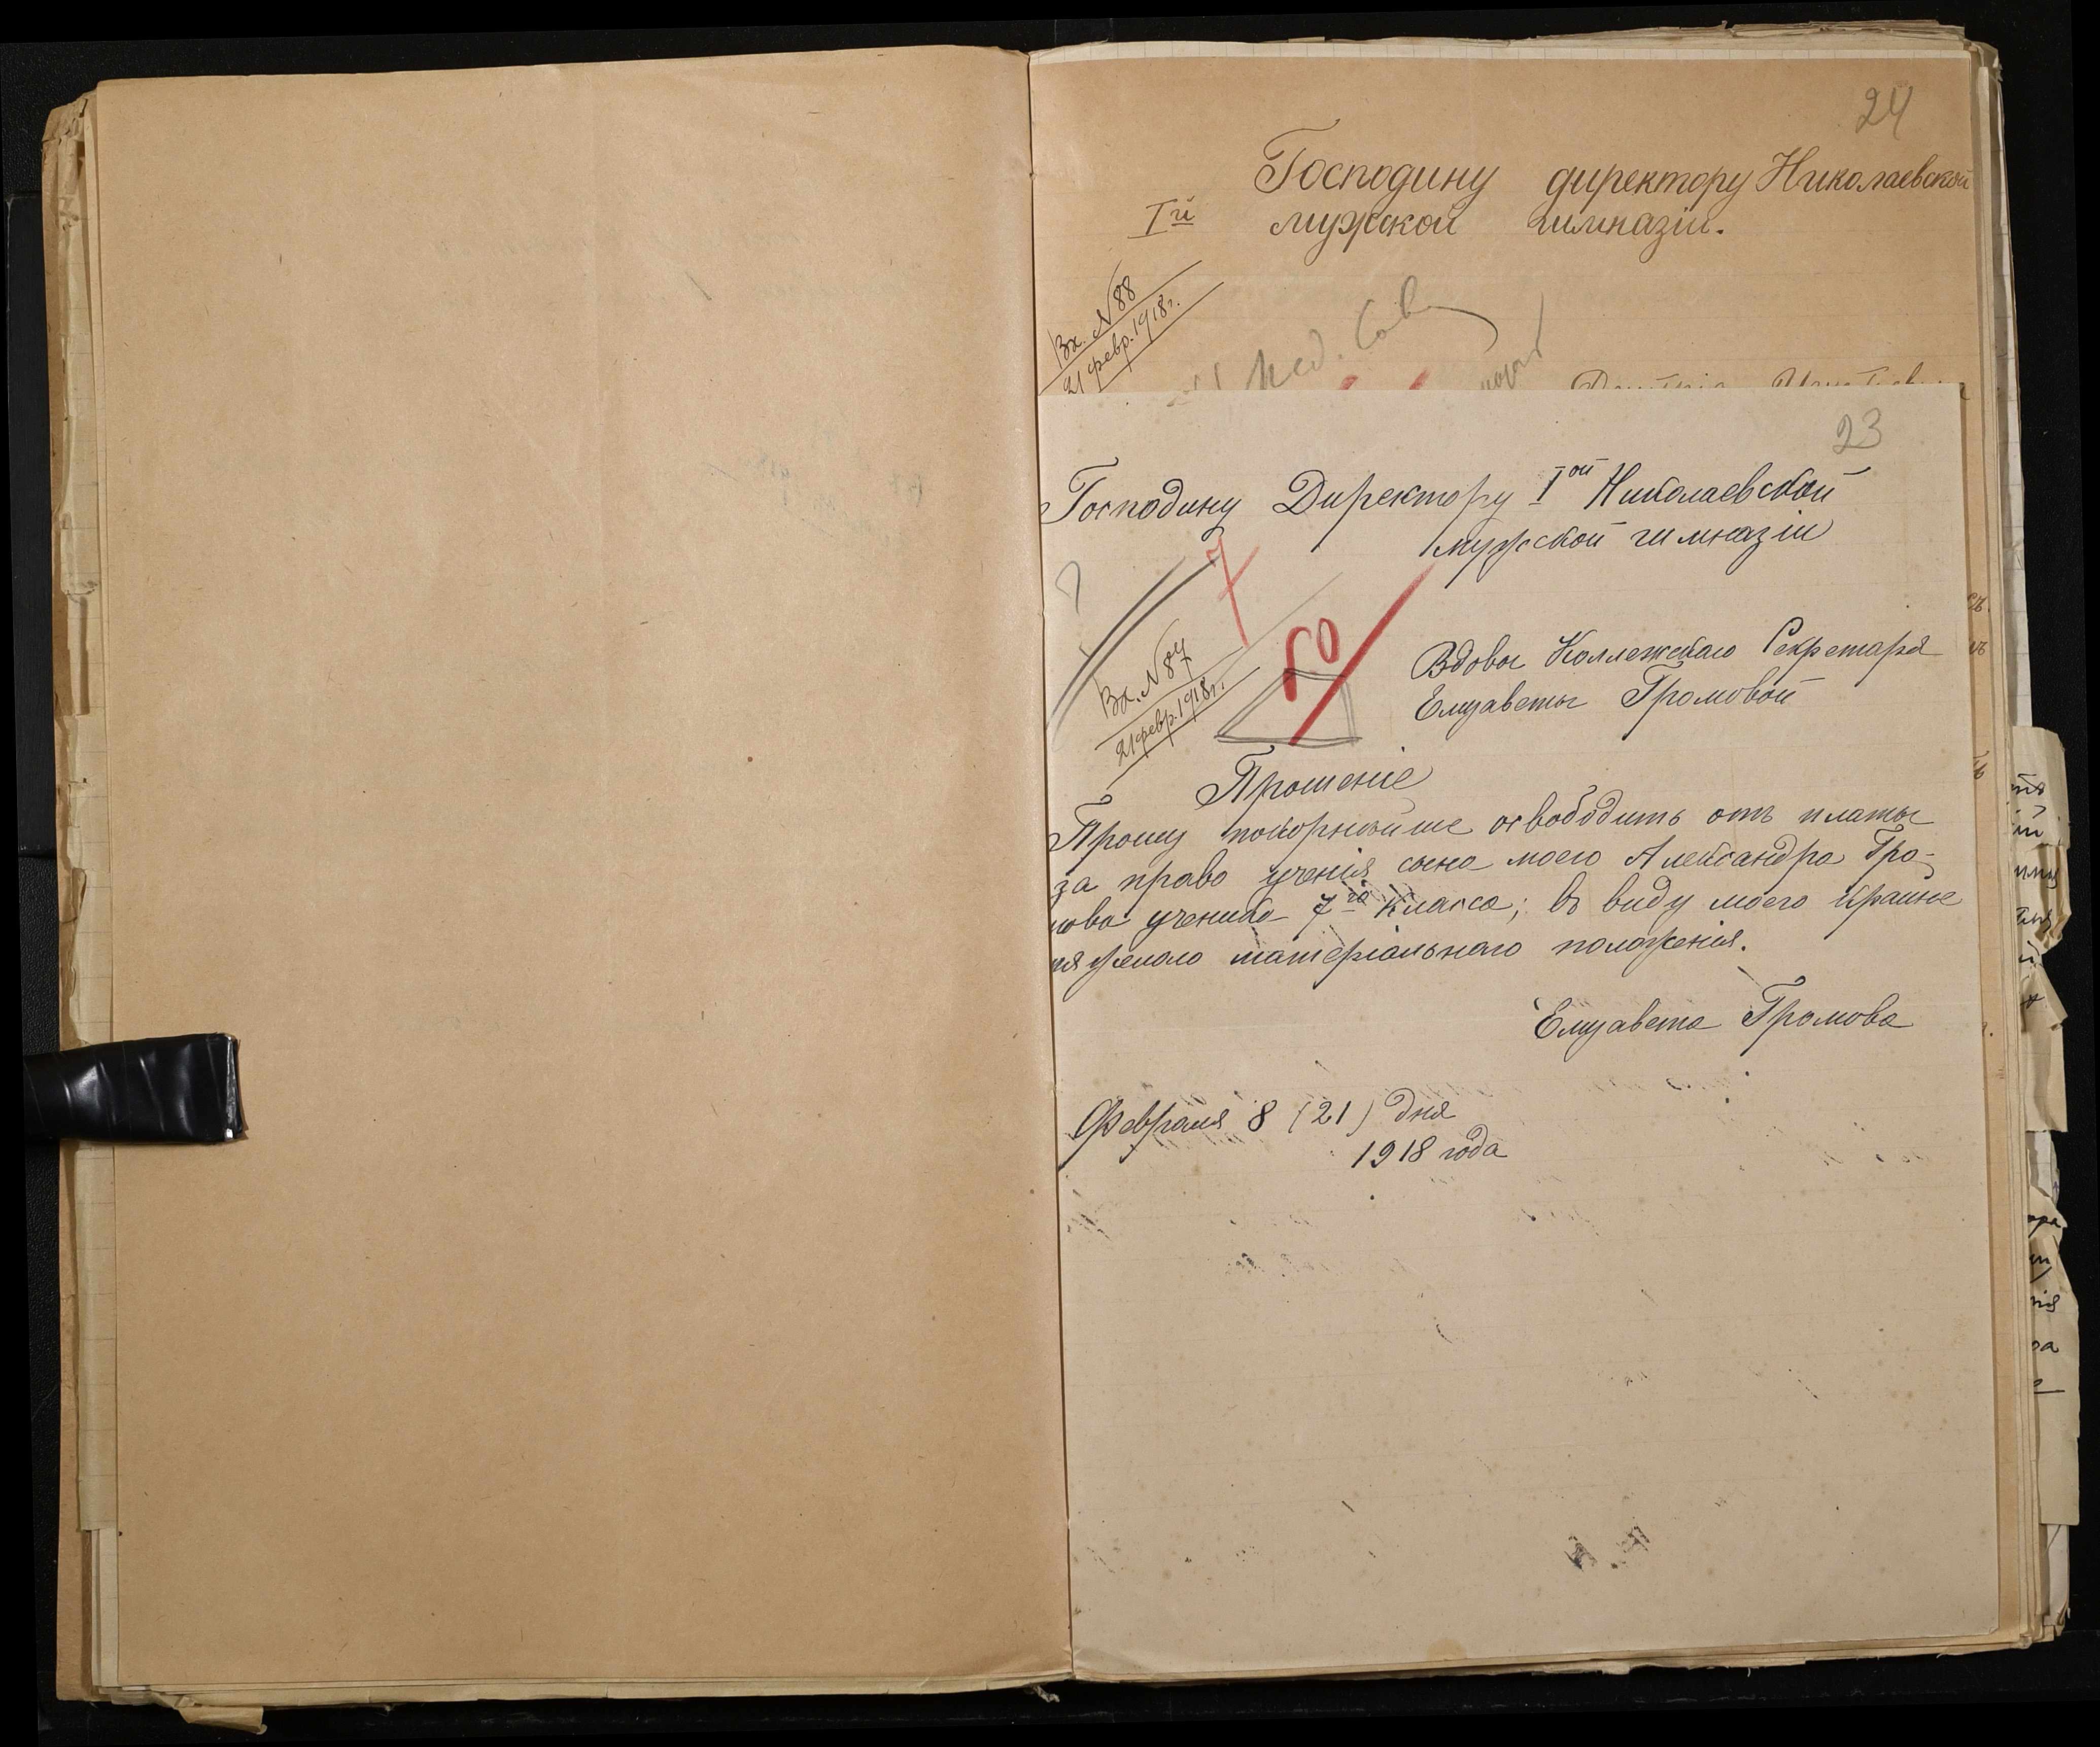 24
Господину директору Николаевской
Iй мужской гимназіи.
Вх. N 88
21 февр. 1918 г.
23
Господину Директору Iой Николаевской
мужской гимназіи
7
Вх. N 87
21 февр. 1918 г.
50
Вдовы Коллежскаго Секретаря
Елизаветы Громовой
Прошеніе
Прошу покорнѣйше освободить отъ платы
за право ученія сына моего Александра Гро-
мова ученика 7го класса; въ виду моего крайне
тяжелаго матеріальнаго положенія.
Елизавета Громова
Февраля 8 (21) дня
1918 года